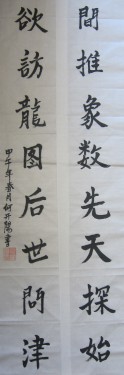 間推象数先天探始
欲訪龍图后世問津
甲午年 月何 書